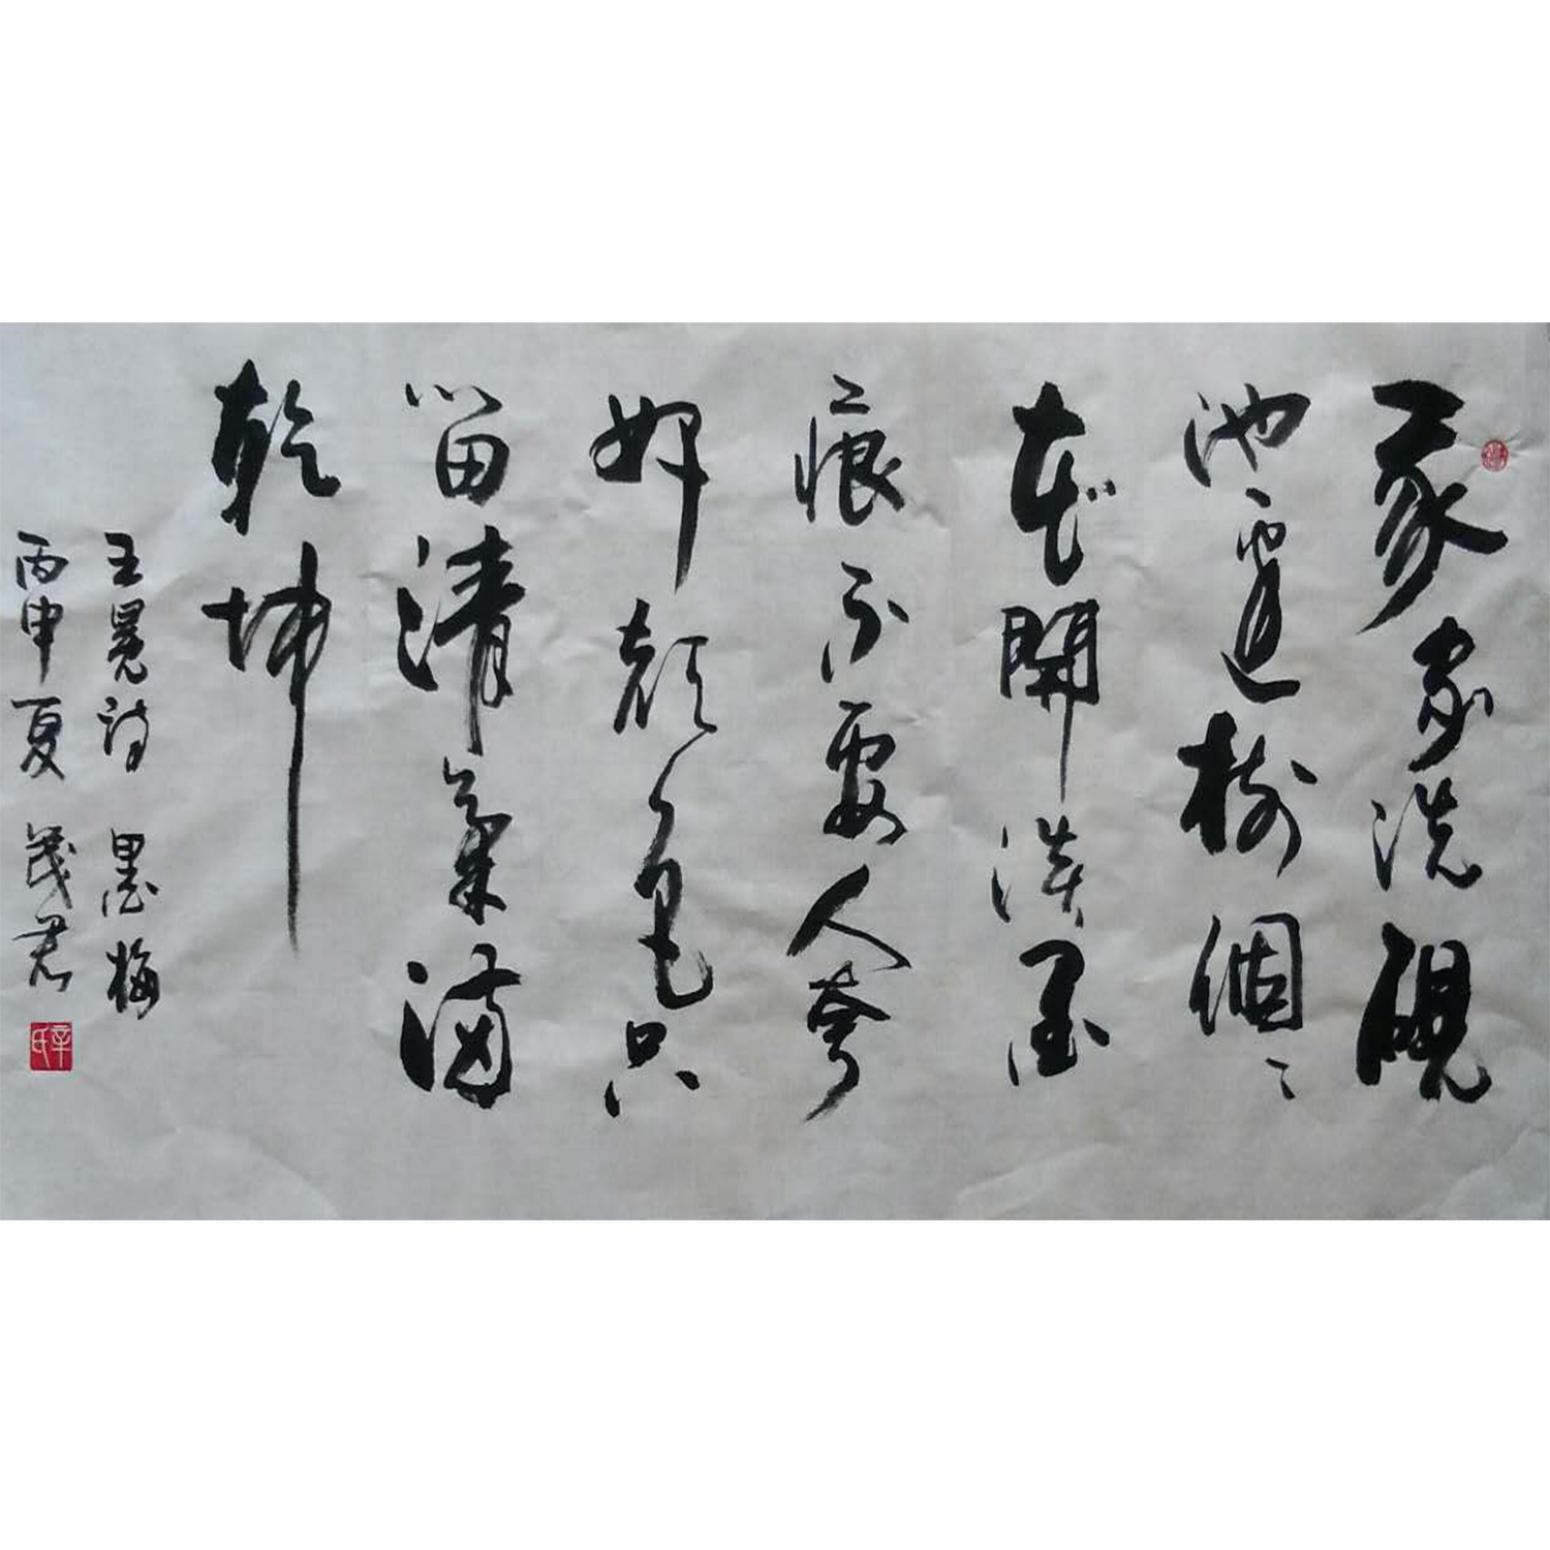 我家洗硯
池邊樹個〻
花開淡墨
痕不要人夸
好顏色只
留清氣滿
乾坤
王冕詩 墨梅
丙申夏 茂君
辛氏